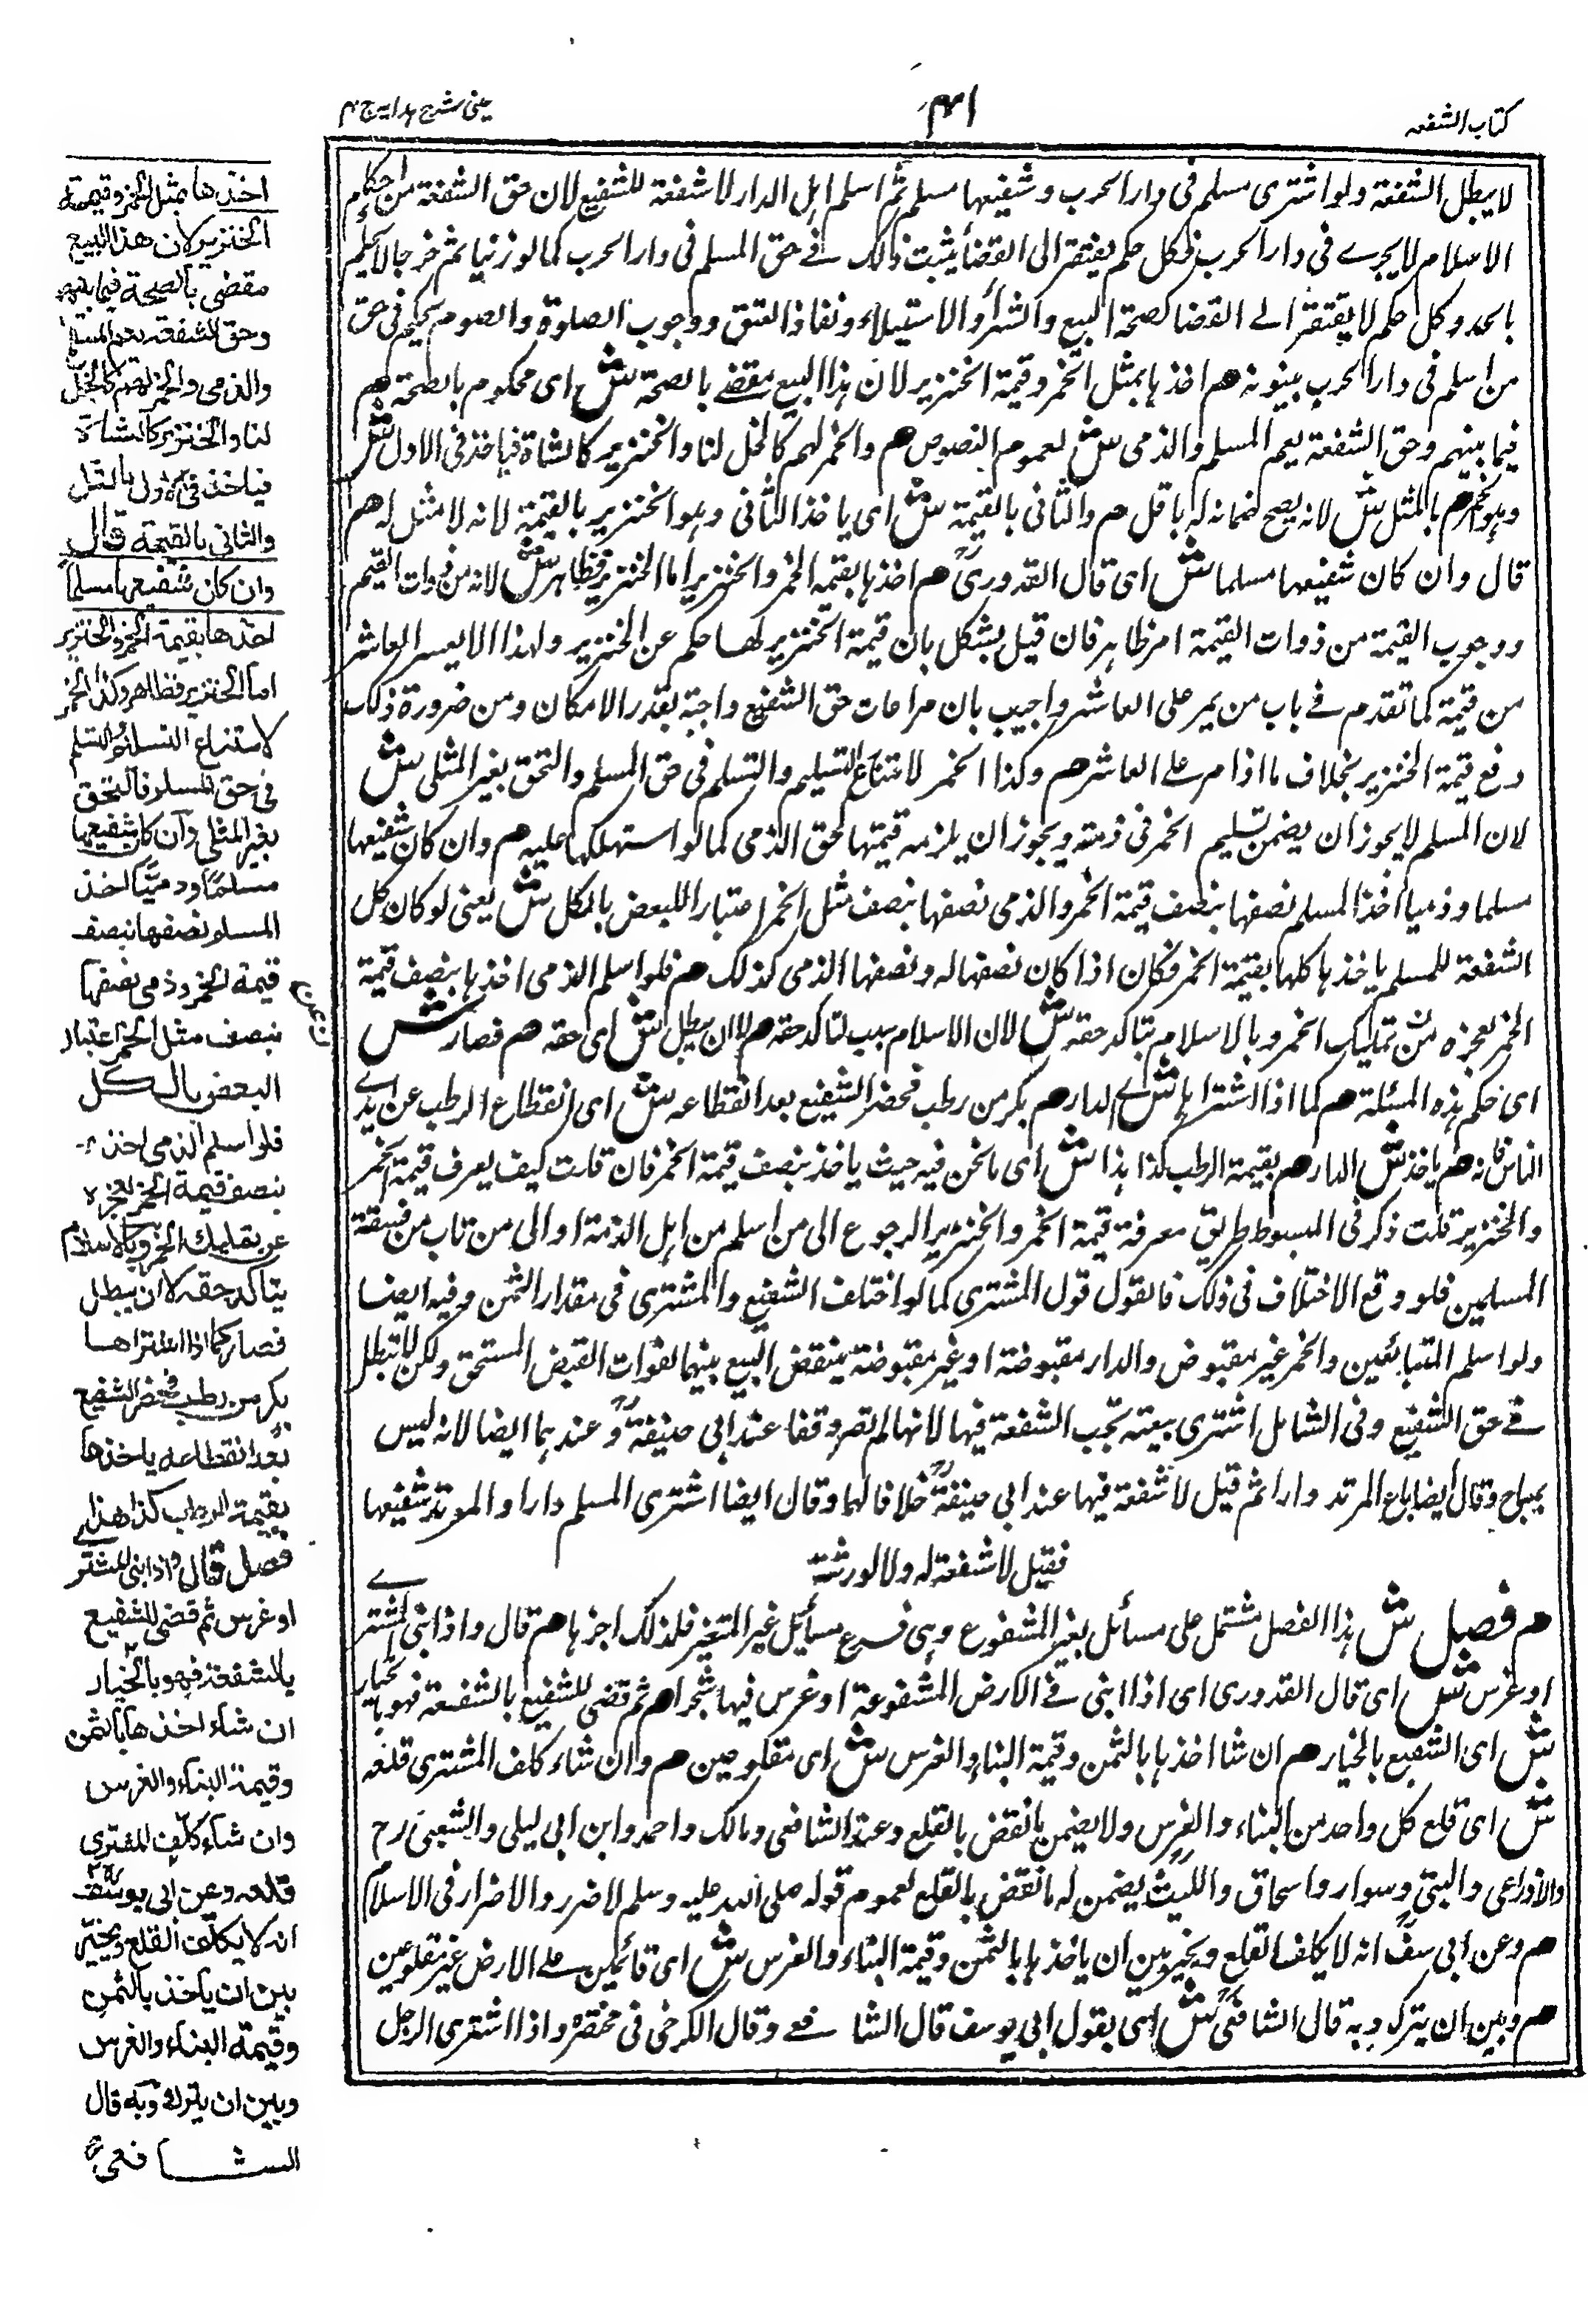 كتاب الشفعه
عینی شرح ہدایہ ج ۴
لا يبطل الشفعة ولو اشترى مسلم فى دار الحرب وشفيعها مسلم ثم اسلم اہل الدار لا شفعة للشفيع لان حق الشفعة من احكام
الاسلام لا يجرے فى دار الحرب فكل حكم يفتقر الى القضاء يثبت ذالک فے حق المسلم فى دار الحرب كما لو زنيا ثم خرجا لا
بالحد وكل حكم لا يفتقر الے القضا كصحة البيع والشراء والاستيلاء ونفاذ العتق ووجوب الصلوة والصوم فى حق
من اسلم فى دار الحرب هم اخذہا بمثل الخمر وقيمة الخنزير لان ہذا البيع مقضے بالصحة ش اى محكوم بالصحة هم
فيما بينهم وحق الشفعة يعم المسلم والذمى ش لعموم النصوص هم والخمر لهم كالخل لنا والخنزير كالشاة فياخذ فى الاول ش
وہو الخمر هم بالمثل ش لانه يصح ضمانه له هم والثانى بالقيمة ش اى ياخذ الثانى وہو الخنزير بالقيمة لانه لا مثل له هم
قال وان كان شفيعها مسلما ش اى قال القدورى هم اخذہا بقيمة الخمر والخنزير اما الخنزير فظاہر ش لانه من ذوات القيم
ووجوب القيمة من ذوات القيمة امر ظاہر فان قيل يشكل بان قيمة الخنزير لها حكم عن الخنزير ولهذا لا يعشر العاشر
من قيمة كما تقدم فے باب من يمر على العاشر واجيب بان مراعات حق الشفيع واجبة بقدر الامكان ومن ضرورة ذلک
دفع قيمة الخنزير بخلاف ما اذا مر علے العاشر هم وكذا الخمر لامتناع التسليم والتسلم فى حق المسلم والتحق بغير المثلى ش
لان المسلم لا يجوز ان يضمن تسليم الخمر فى ذمته ويجوز ان يلزمه قيمتها لحق الذمى كما لو استهلكها عليه هم وان كان شفيعها
مسلما وذميا اخذ المسلم نصفها بنصف قيمة الخمر والذمى نصفها بنصف مثل الخمر اعتبارا للبعض بالكل ش يعنى لو كان كل
الشفعة للمسلم ياخذہا كلها بقيمة الخمر فكان اذا كان نصفها له ونصفها الذمى كذلک هم فلو اسلم الذمى اخذہا بنصف قيمة
الخمر لعجزه عن تمليک الخمر وبالاسلام يتاكد حقه ش لان الاسلام سبب لتاكد حقه هم لا ان يبطل ش اى حقه هم فصار ش
اى حكم ہذه المسئلة هم كما اذا اشتراہا ش اے الدار هم بكر من رطب فحضر الشفيع بعد انقطاعه ش اى انقطاع الرطب عن ايدے
الناس فانه هم ياخذ ش الدار هم بقيمة الرطب كذا ہذا ش اى ما نحن فيه حيث ياخذ بنصف قيمة الخمر فان قلت كيف يعرف قيمة الخمر
والخنزير قلت ذكر فى المبسوط طريق معرفة قيمة الخمر والخنزير الرجوع الى من اسلم من اہل الذمة او الى من تاب من فسقة
المسلمين فلو وقع الاختلاف فى ذلک فالقول قول المشترى كما لو اختلف الشفيع والمشترى فى مقدار الثمن وفيه ايضا
ولو اسلم المتبائعين والخمر غير مقبوض والدار مقبوضة او غير مقبوضة ينتقض البيع بينهما لفوات القبض المستحق ولكن لا تبطل
فے حق الشفيع وفى الشامل اشترى بيعته تجب الشفعة فيها لانها لم تصر وقفا عند ابى حنيفة وعندہما ايضا لانه ليس
بمباح وقال ايضا باع المرتد دارا ثم قيل لا شفعة فيها عند ابى حنيفة خلافا لهما وقال ايضا اشترى المسلم دارا والمرتد شفيعها
فقيل لا شفعة له ولا لورثته
هم فصل ش ہذا الفصل مشتمل على مسائل بغير المشفوع وہى فرع مسائل غير المتغير فلذلک اخرہا هم قال واذا ابنى المشترے
او غرس ش اى قال القدورى اى اذا ابنى فے الارض المشفوعة او غرس فيها شجرا هم ثم قضى للشفيع بالشفعة فهو بالخيار
ش اى الشفيع بالخيار هم ان شا اخذہا بالثمن وقيمة البناء والغرس ش اى مقلوعين هم وان شاء كلف المشترى قلعه
ش اى قلع كل واحد من البناء والغرس ولا يضمن ما نقض بالقلع وعند الشافعى ومالک واحمد وابن ابى ليلى والشعبى رح
والاوزاعى والبتى وسوار واسحاق والليث يضمن له ما نقض بالقلع لعموم قوله صلى اللہ عليه وسلم لا ضرر والاضرار فى الاسلام
هم وعن ابى سف انه لا يكلف القلع ويخير بين ان ياخذہا بالثمن وقيمة البناء والغرس ش اى قائمين علے الارض غير مقلوعين
هم وبين ان يترک وبه قال الشافعى ش اى بقول ابى يوسف قال الشافعے وقال الكرخى فى مختصره واذا اشترى الرجل
اخذها بمثل الخمر وقيمة
الخنزير لان هذا البيع
مقضى بالصحة فيما بينهم
وحق الشفعة يعم المسلم
والذمى والخمر لهم كالخل
لنا والخنزير كالشاة
فياخذ فى الاول بالمثل
والثانى بالقيمة قال
وان كان شفيعها مسلما
اخذها بقيمة الخمر والخنزير
اما الخنزير فظاهر وكذا الخمر
لامتناع التسليم والتسلم
فى حق المسلم فالتحق
بغير المثلى وان كان شفيعها
مسلما وذميا اخذ
المسلم نصفها بنصف
قيمة الخمر وذمى نصفها
بنصف مثل الخمر اعتبار
البعض بالكل
فلو اسلم الذمى اخذ
بنصف قيمة الخمر لعجزه
عن تمليك الخمر وبالاسلام
يتاكد حقه لا ان يبطل
فصار كما اذا اشتراها
بكر من رطب فحضر الشفيع
بعد انقطاعه ياخذها
بقيمة الرطب كذا هذا
فصل قال واذا بنى المشترے
او غرس ثم قضى للشفيع
بالشفعة فهو بالخيار
ان شاء اخذها بالثمن
وقيمة البناء والغرس
وان شاء كلف المشترى
قلعه وعن ابى يوسف
انه لا يكلف القلع ويخير
بين ان ياخذ بالثمن
وقيمة البناء والغرس
وبين ان يترك وبه قال
الشافعى